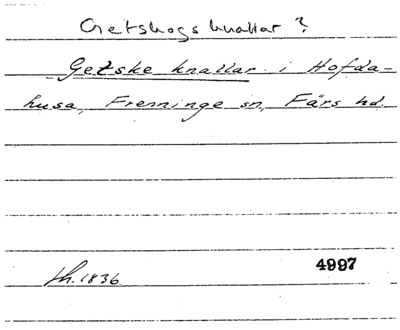 Getskogsknallar?
Getske knallar i Hofda-
husa, Frenninge sn, Färs hd.
th. 1836
4997